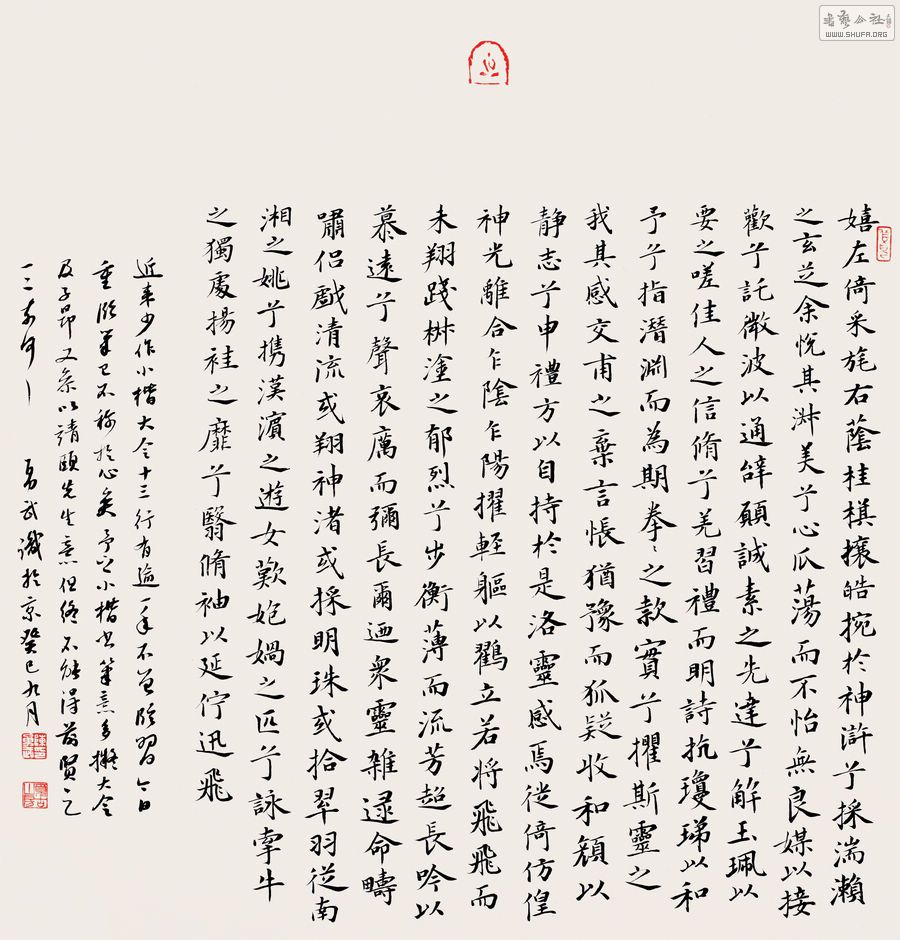 嬉左倚采旄右蔭桂棋攘皓捥於神滸兮採湍瀨
之玄芝余悅其淑美兮心爪蕩而不怡無良媒以接
歡兮託微波以通辭願誠素之先達兮解玉珮以
要之嗟佳人之信脩兮羌習禮而明詩抗瓊珶以和
予兮指潛淵而為期拳〻之款實兮懼斯靈之
我其感交甫之棄言悵猶豫而狐疑收和顏以
静志兮申禮方以自持於是洛靈感焉徙倚仿偟
神光離合乍陰乍陽擢輕軀以鸖立若將飛飛而
未翔踐椒塗之郁烈兮步衡薄而流芳超長吟以
慕遠兮聲哀厲而彌長爾迺衆靈雜遝命疇
嘯侣戲清流或翔神渚或採明珠或拾翠羽從南
湘之姚兮攜漢濵之遊女歎媧之匹兮詠牽牛
之獨處揚袿之靡兮翳脩袖以延佇迅飛
近來少作小楷大令十三行有逾一年不曾臨習今日
重臨筆已不称於心矣予之小楷筆意多擬大令
及子昂又參以靖頤先生意但終不能得前賢之
一二奈何〻 武識於京癸巳九月
WWW.SHUFA.ORG